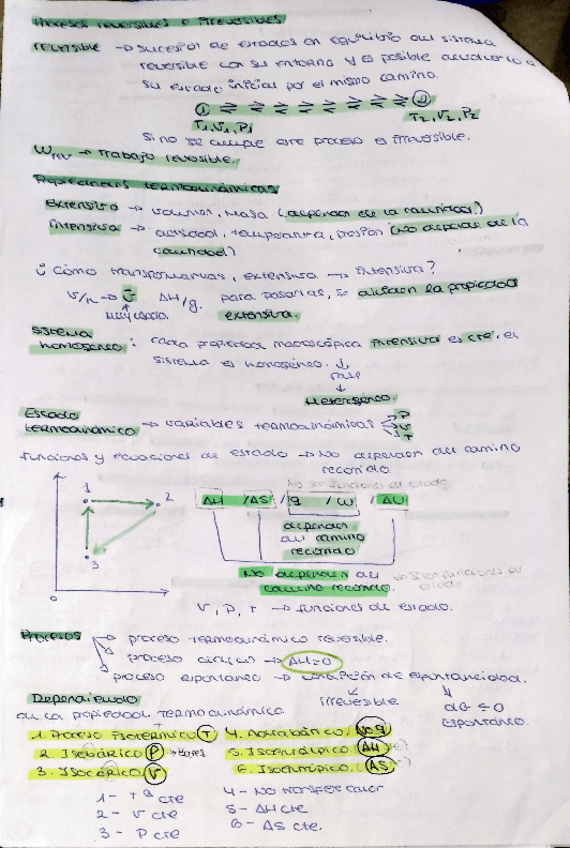 Procesos reversibles e irreversibles
reversible → sucesión de estados en equilibrio del sistema
reversible con su entorno y es posible devolverlo a
su estado inicial por el mismo camino.
1 ⇌ ⇌ ⇌ ⇌ ⇌ ⇌ ⇌ ⇌ 2
T1,V1,P1 T2,V2,P2
si no se cumple este proceso es irreversible.
Wrev → Trabajo reversible.
Propiedades termodinámicas
extensiva → volumen, masa (dependen de la cantidad.)
intensiva → densidad, temperatura, presión (no depende de la
cantidad)
¿Cómo transformarlas, extensiva → intensiva?
V/n → V̄ ΔH/g. para pasarlas, se dividen la propiedad
extensiva.
Sistema
homogéneo: cada propiedad macroscópica intensiva es cte, el
sistema es homogéneo. ↓
fase
↓
Heterogéneo.
Estado
termodinámico → variables termodinámicas P
V
T
funciones y ecuaciones de estado → No dependen del camino
recorrido
No son funciones de estado
1 2 ΔH / ΔS / q / w / ΔU
dependen
del camino
recorrido
3
No dependen del
camino recorrido. → Si son funciones de
estado
0
V, P, T → funciones de estado.
Procesos → proceso termodinámico reversible.
proceso cíclico → ΔH=0
proceso espontáneo → condición de espontaneidad.
irreversible
dG ≤ 0
espontáneo.
Dependiendo
de la propiedad termodinámica
1. Proceso Isotérmico T 4. Adiabático No q
2. Isobárico P 5. Isoentálpico ΔH
3. Isocórico V 6. Isoentrópico. ΔS
1 - Tª cte 4 - No transfer calor
2 - V cte 5 - ΔH cte
3 - P cte 6 - ΔS cte.